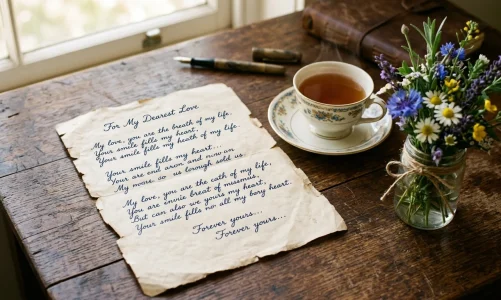 For My Dearest Love
My love, you are the breath of my life,
Your smile fills my heart,
Your smile fills my heath of my life.
Your smile fills my heart...
Your are end aron and
My noon, so us sold us.
My love, you are the cath of my life,
You are breat of my heart,
But can also we yours my heart,
Your smile fills no all my bory heart.
Forever yours...
Forever yours...